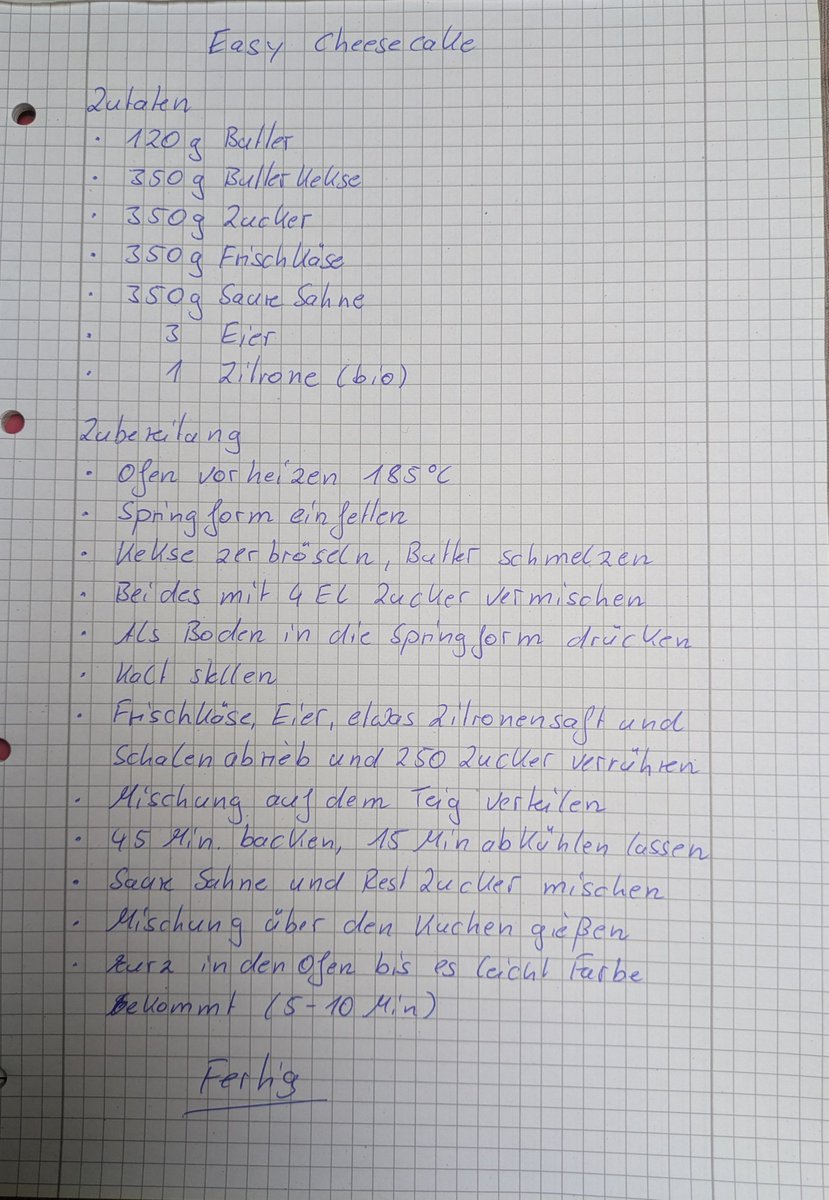 Easy Cheesecake
Zutaten
· 120g Butter
· 350g Butterkekse
· 350g Zucker
· 350g Frischkäse
· 350g Saure Sahne
· 3 Eier
· 1 Zitrone (bio)
Zubereitung
· Ofen vorheizen 185°C
· Springform einfetten
· Kekse zerbröseln, Butter schmelzen
· Beides mit 4 EL Zucker vermischen
· Als Boden in die Springform drücken
· Kalt stellen
· Frischkäse, Eier, etwas Zitronensaft und
Schalenabrieb und 250 Zucker verrühren
· Mischung auf dem Teig verteilen
· 45 Min. backen, 15 Min abkühlen lassen
· Saure Sahne und Rest Zucker mischen
· Mischung über den Kuchen gießen
· kurz in den Ofen bis es leicht Farbe
bekommt (5-10 Min)
Fertig